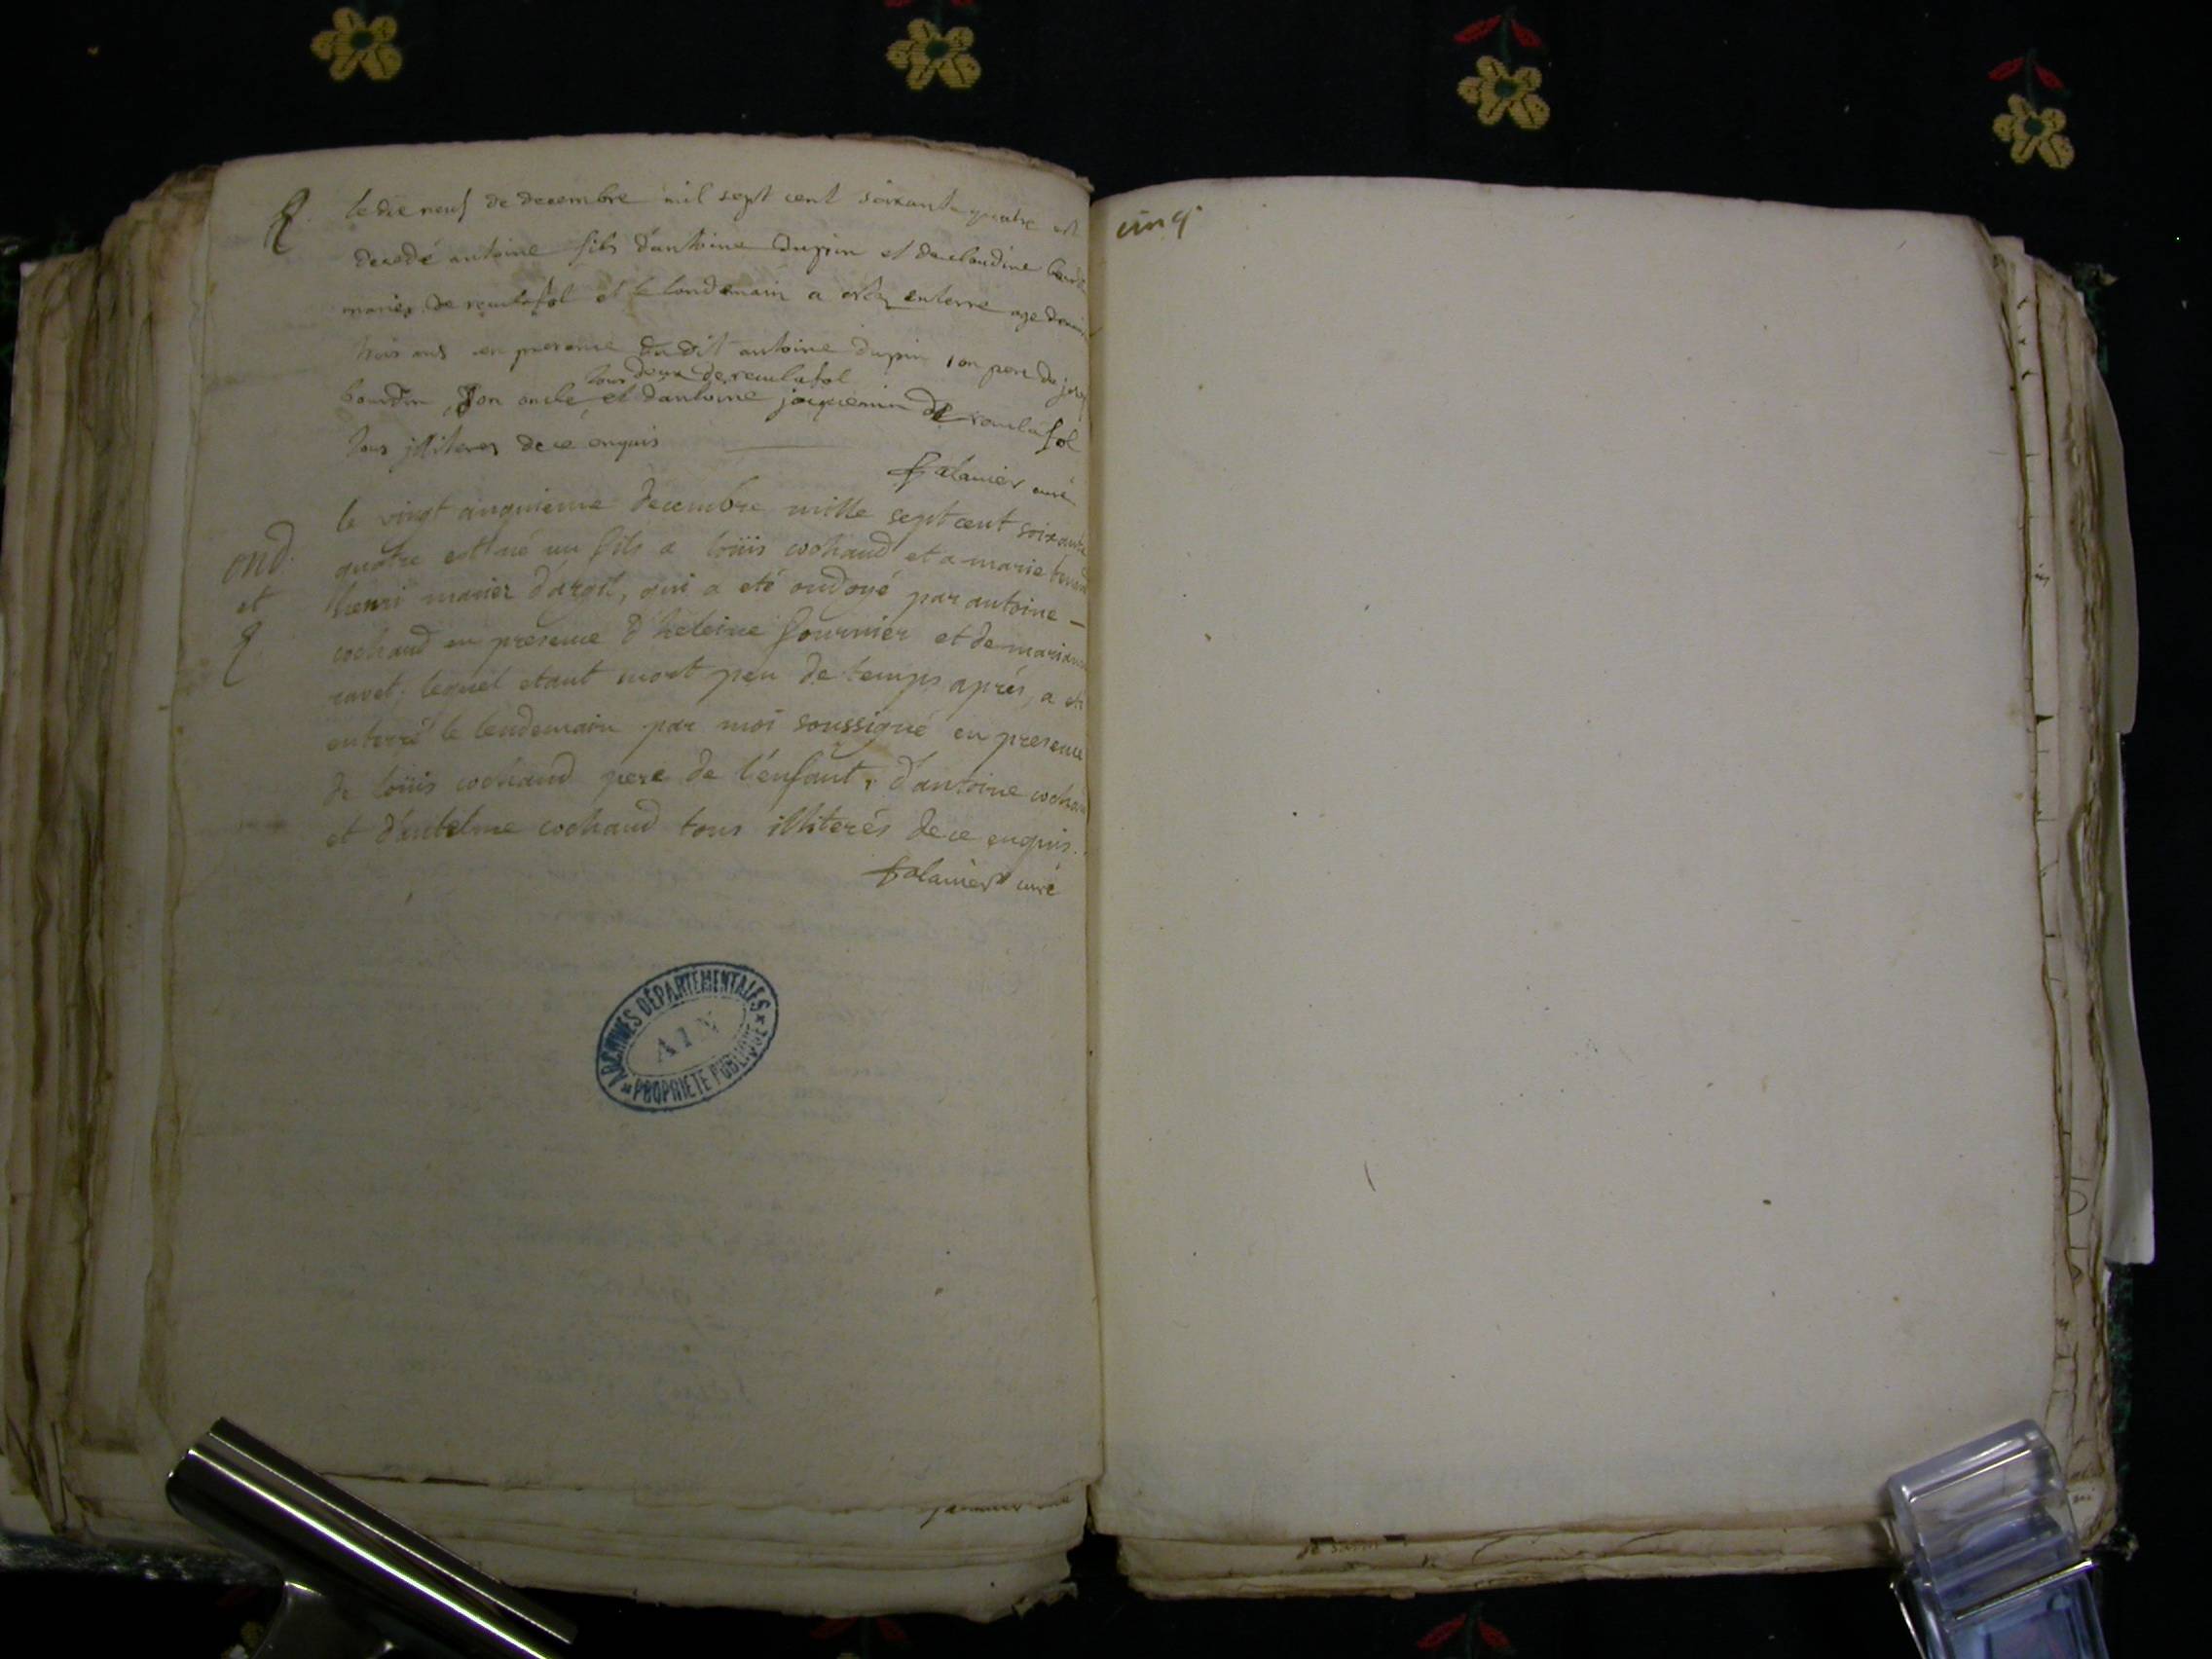 E.
le dix neuf de decembre mil sept cent soixante quatre est
decedé antoine fils d'antoine dupin et de claudine
mariez de et le lendemain a estez enterre age
trois ans en presence dudit antoine dupin son pere de
tous deux de
bourdin, son oncle, et d'antoine jacquemin de
tous jlliteres de ce enquis
falavier curé
ond.
et
E.
le vingt cinquieme decembre mille sept cent soixante
quatre est né un fils a loüis cochaud et a marie
henri mariez d'argit, qui a eté ondoyé par antoine –
cochaud en presence d'heleine fournier et de mariane
ravet; lequel etant mort peu de temps aprés, a eté
enterré le lendemain par moi soussigné en presence
de loüis cochaud pere de l'enfant, d'antoine cochaud
et d'antelme cochaud tous illiterés de ce enquis.
falavier curé
ARCHIVES DÉPARTEMENTALES
AIN
PROPRIÉTÉ PUBLIQUE
cinq